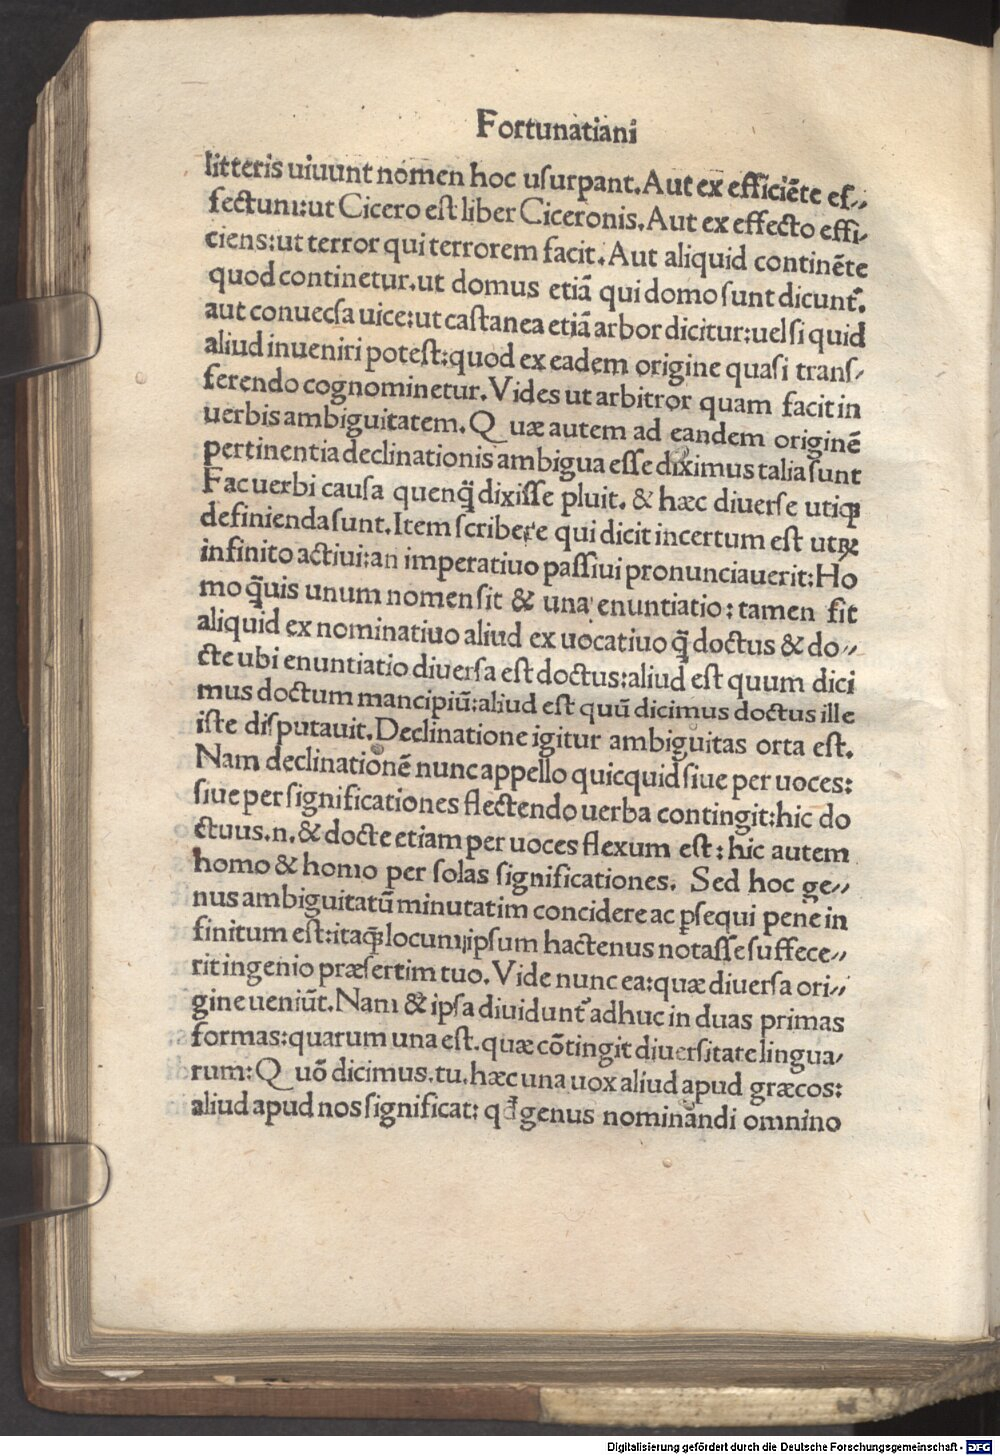 Fortunatiani
litteris uiuunt nomen hoc uſurpant. Aut ex efficiẽte ef⸗
fectum: ut Cicero eſt liber Ciceronis. Aut ex effecto effi⸗
ciens: ut terror qui terrorem facit. Aut aliquid continẽte
quod continetur. ut domus etiã qui domo ſunt dicunt᷑.
aut conuecſa uice: ut caſtanea etiã arbor dicitur: uel ſi quid
aliud inueniri poteſt: quod ex eadem origine quaſi tranſ⸗
ferendo cognominetur. Vides ut arbitror quam facit in
uerbis ambiguitatem. Quæ autem ad eandem originẽ
pertinentia declinationis ambigua eſſe diximus talia ſunt
Fac uerbi cauſa quenq̃ dixiſſe pluit. & hæc diuerſe utiqꝫ
definienda ſunt. Item ſcribere qui dicit incertum eſt utꝝ
infinito actiui: an imperatiuo paſſiui pronunciauerit: Ho
mo q̃uis unum nomen ſit & una enuntiatio: tamen fit
aliquid ex nominatiuo aliud ex uocatiuo q̃ doctus & do⸗
cte ubi enuntiatio diuerſa eſt doctus: aliud eſt quum dici
mus doctum mancipiũ: aliud eſt quũ dicimus doctus ille
iſte diſputauit. Declinatione igitur ambiguitas orta eſt.
Nam declinationẽ nunc appello quicquid ſiue per uoces:
ſiue per ſignificationes flectendo uerba contingit: hic do
ctuus. n. & docte etiam per uoces flexum eſt: hic autem
homo & homo per ſolas ſignificationes. Sed hoc ge⸗
nus ambiguitatũ minutatim concidere ac ꝑſequi pene in
finitum eſt: itaqꝫ locum ipſum hactenus notaſſe ſuffece⸗
rit ingenio præſertim tuo. Vide nunc ea: quæ diuerſa ori⸗
gine ueniũt. Nam & ipſa diuidunt᷑ adhuc in duas primas
formas: quarum una eſt. quæ cõtingit diuerſitate lingua⸗
rum: Quõ dicimus. tu. hæc una uox aliud apud græcos:
aliud apud nos ſignificat: qď genus nominandi omnino
Digitalisierung gefördert durch die Deutsche Forschungsgemeinschaft - DFG